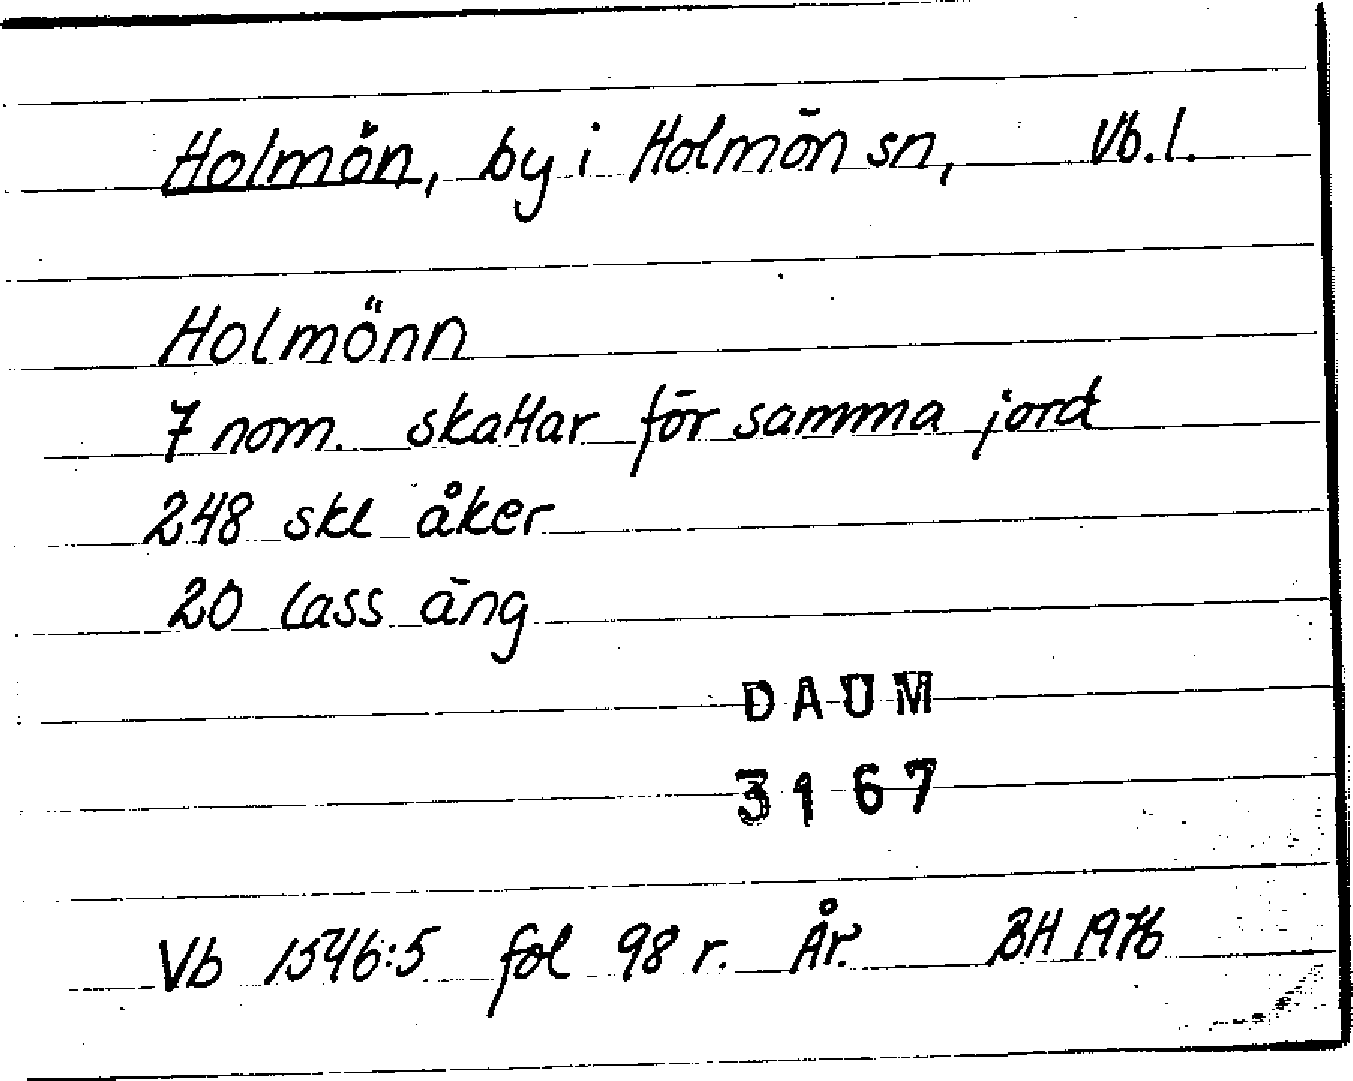 Holmön, by i Holmön sn, Vb.l.
Holmönn
7 nom. skattar för samma jord
248 skl åker
20 lass äng
DAUM
3167
Vb 1546:5 fol 98 r. År. BH 1976